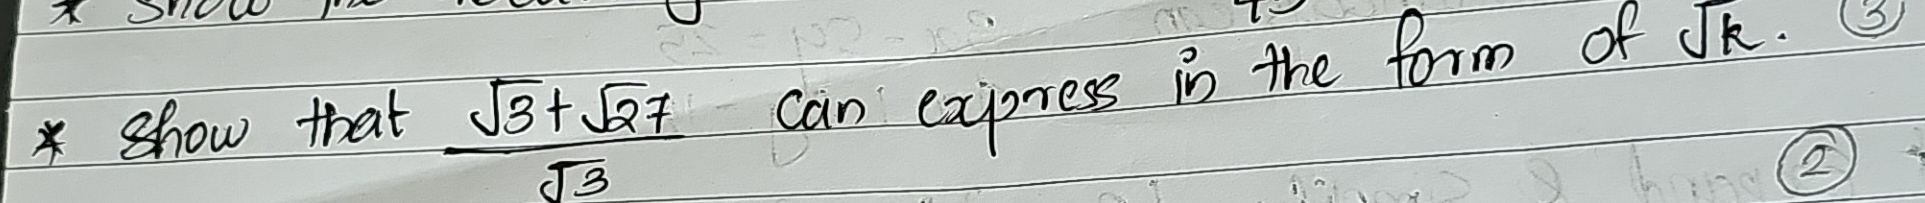 * Show
③
* Show that (√3+√27)/√3 can express in the form of √k.
②